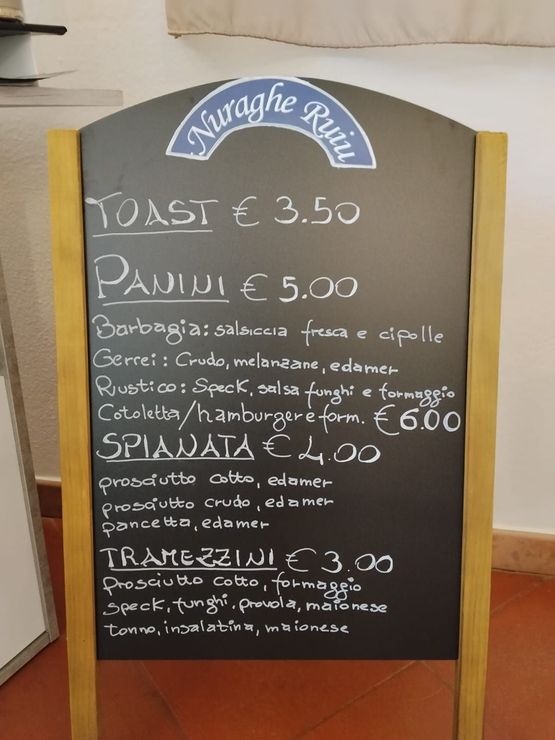 Nuraghe Ruiu
TOAST € 3.50
PANINI € 5.00
Barbagia: salsiccia fresca e cipolle
Gerrei: Crudo, melanzane, edamer
Rustico: Speck, salsa funghi e formaggio
Cotoletta/hamburger e form. €6.00
SPIANATA € 4.00
prosciutto cotto, edamer
prosciutto crudo, edamer
pancetta, edamer
TRAMEZZINI € 3.00
Prosciutto cotto, formaggio
speck, funghi, provola, maionese
tonno, insalatina, maionese